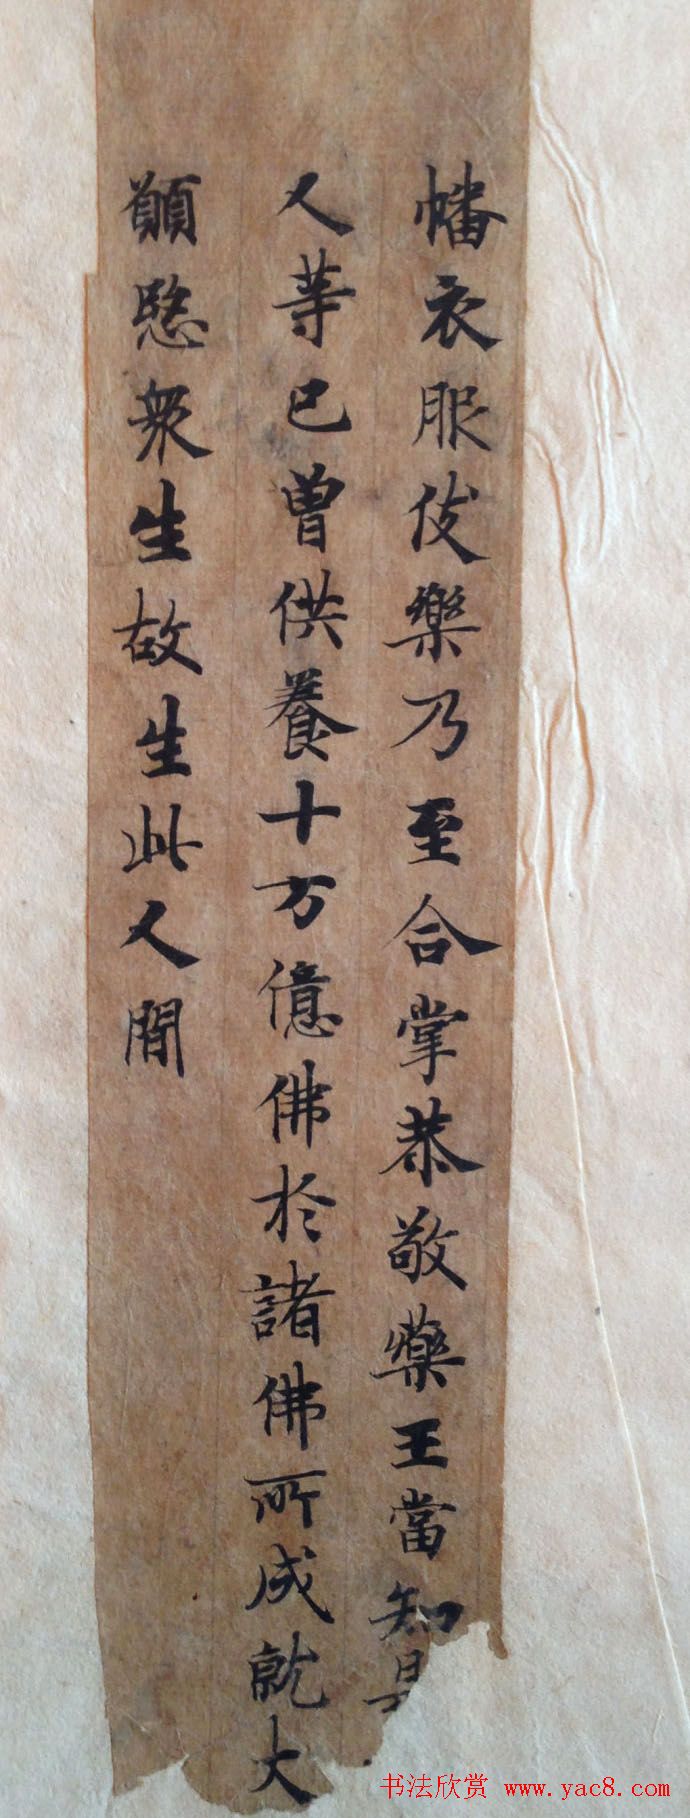 幡衣服伎樂乃至合掌恭敬藥王當知是
人等已曾供養十万億佛於諸佛所成就大
願愍衆生故生此人間
书法欣赏 www.yac8.com